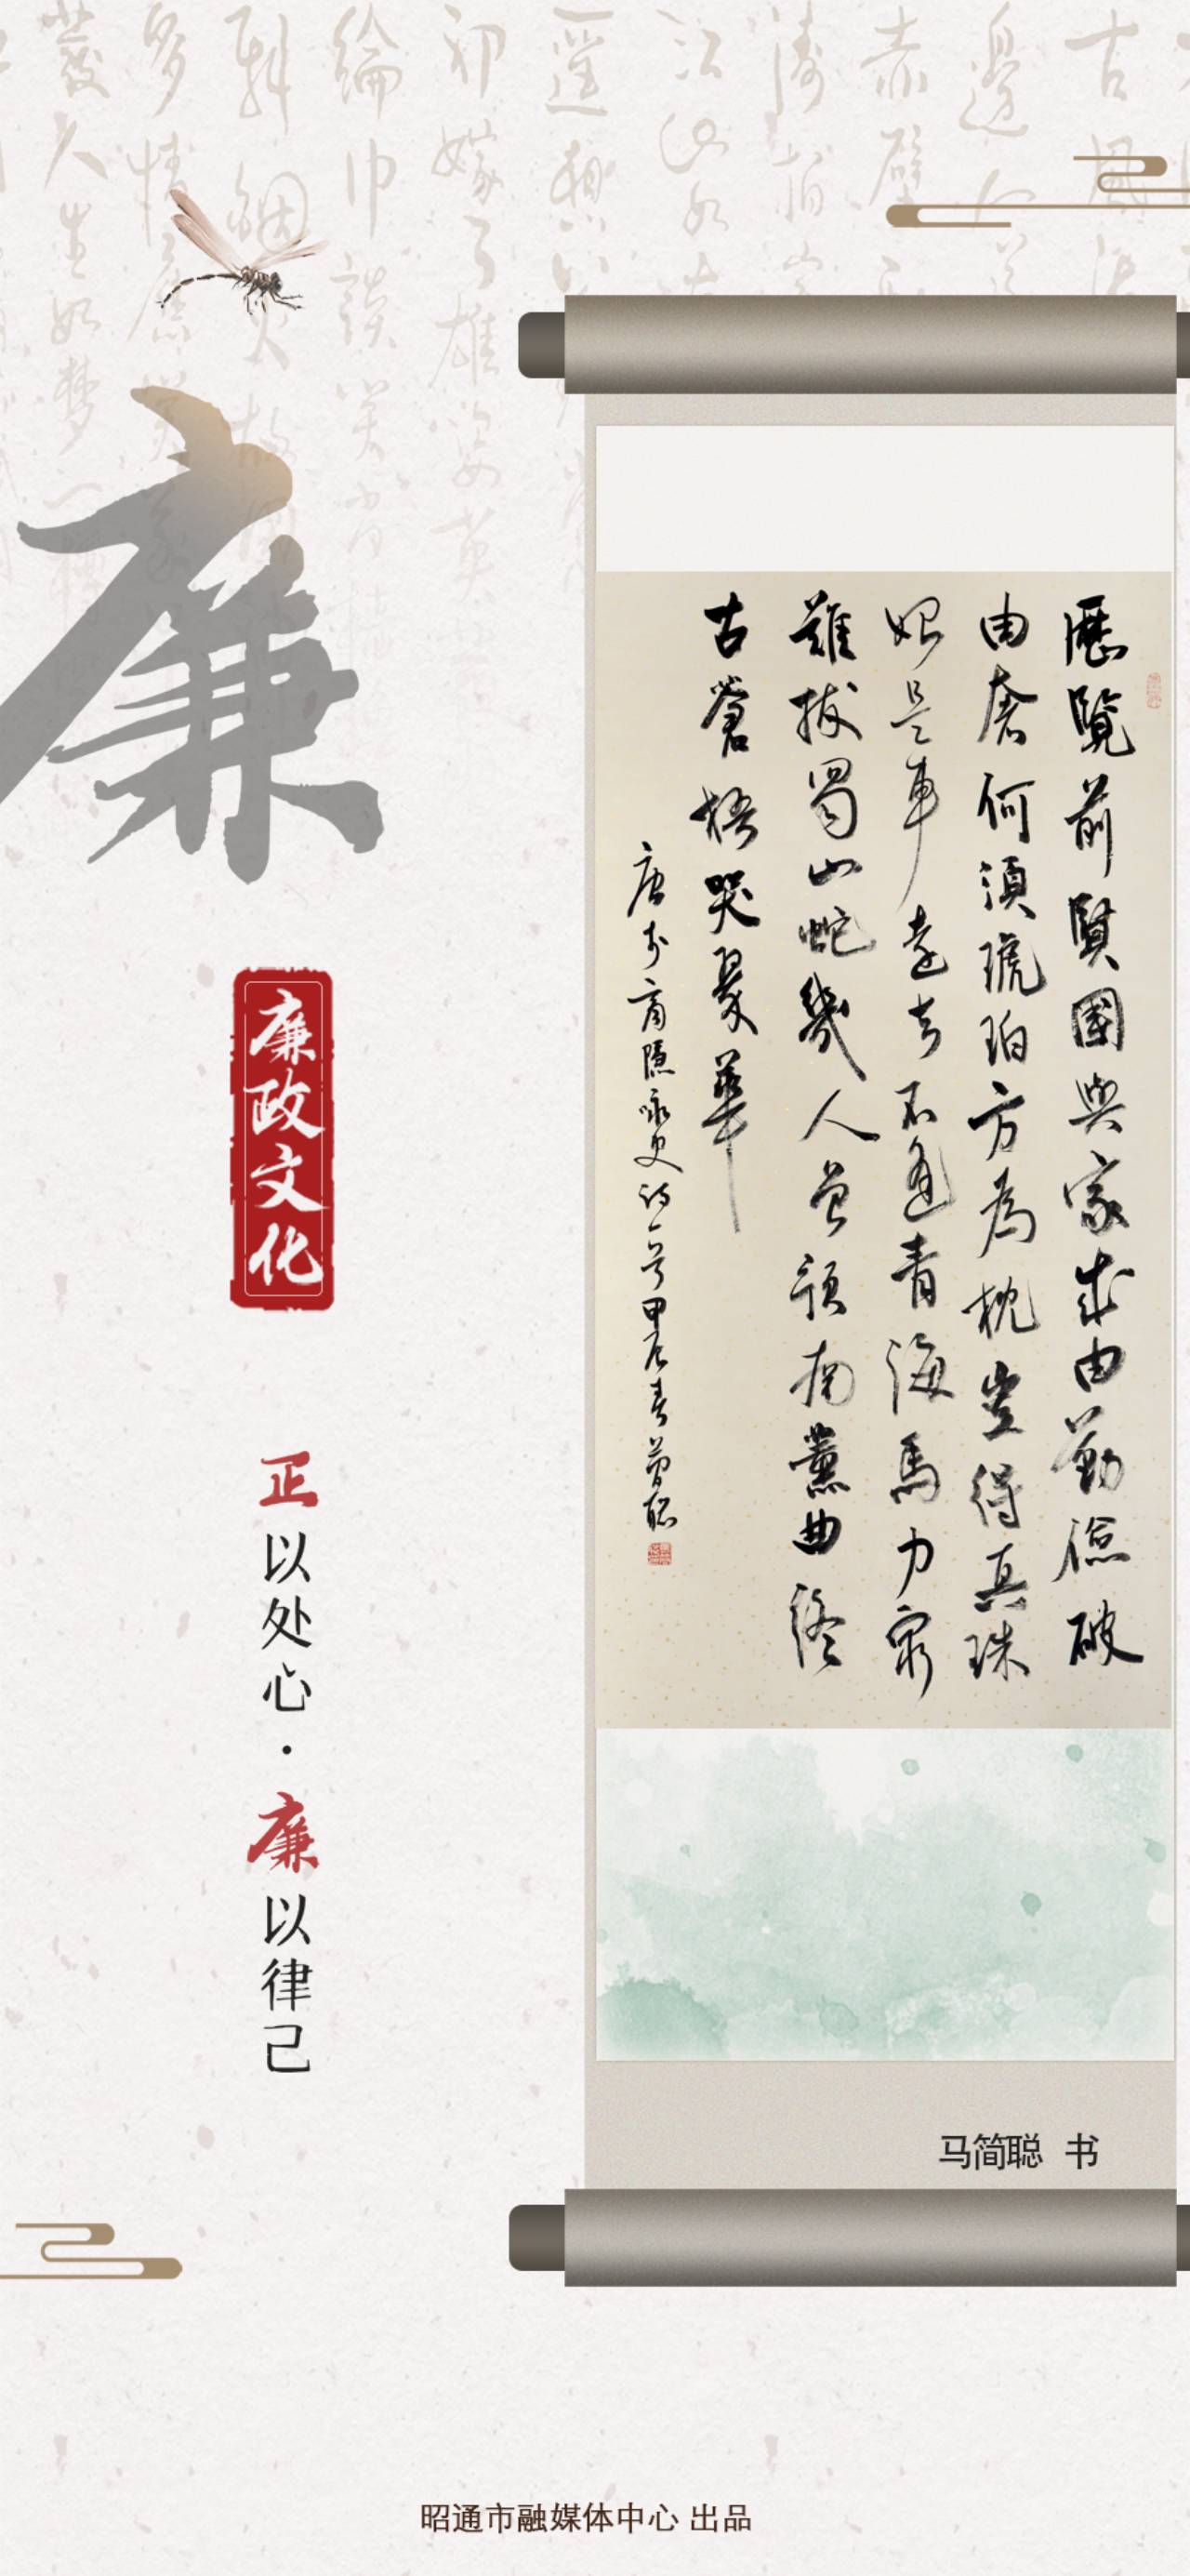 廉
廉政文化
正以处心·廉以律己
歷覽前賢國與家成由勤儉破
由奢何須琥珀方為枕豈得真珠
始是車遠去不逢青海馬力窮
難拔蜀山蛇幾人曾預南薰曲終
古蒼梧哭翠華
唐李商隱咏史詩一首甲辰春簡聰
马简聪 书
昭通市融媒体中心 出品